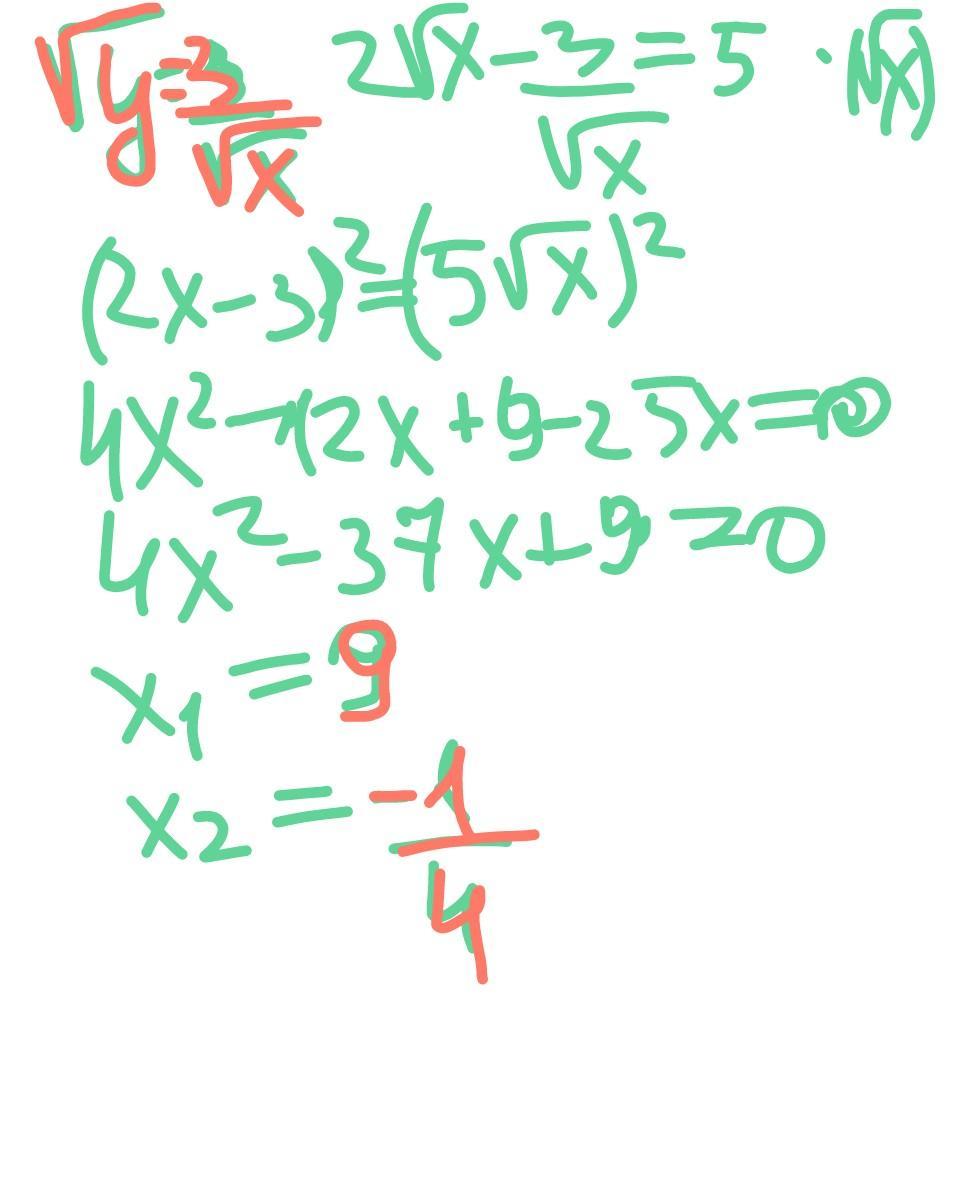 √y = 3/√x 2√x - 3/√x = 5 · (√x)
(2x - 3)² = (5√x)²
4x² - 12x + 9 - 25x = 0
4x² - 37x + 9 = 0
x₁ = 9
x₂ = -1/4